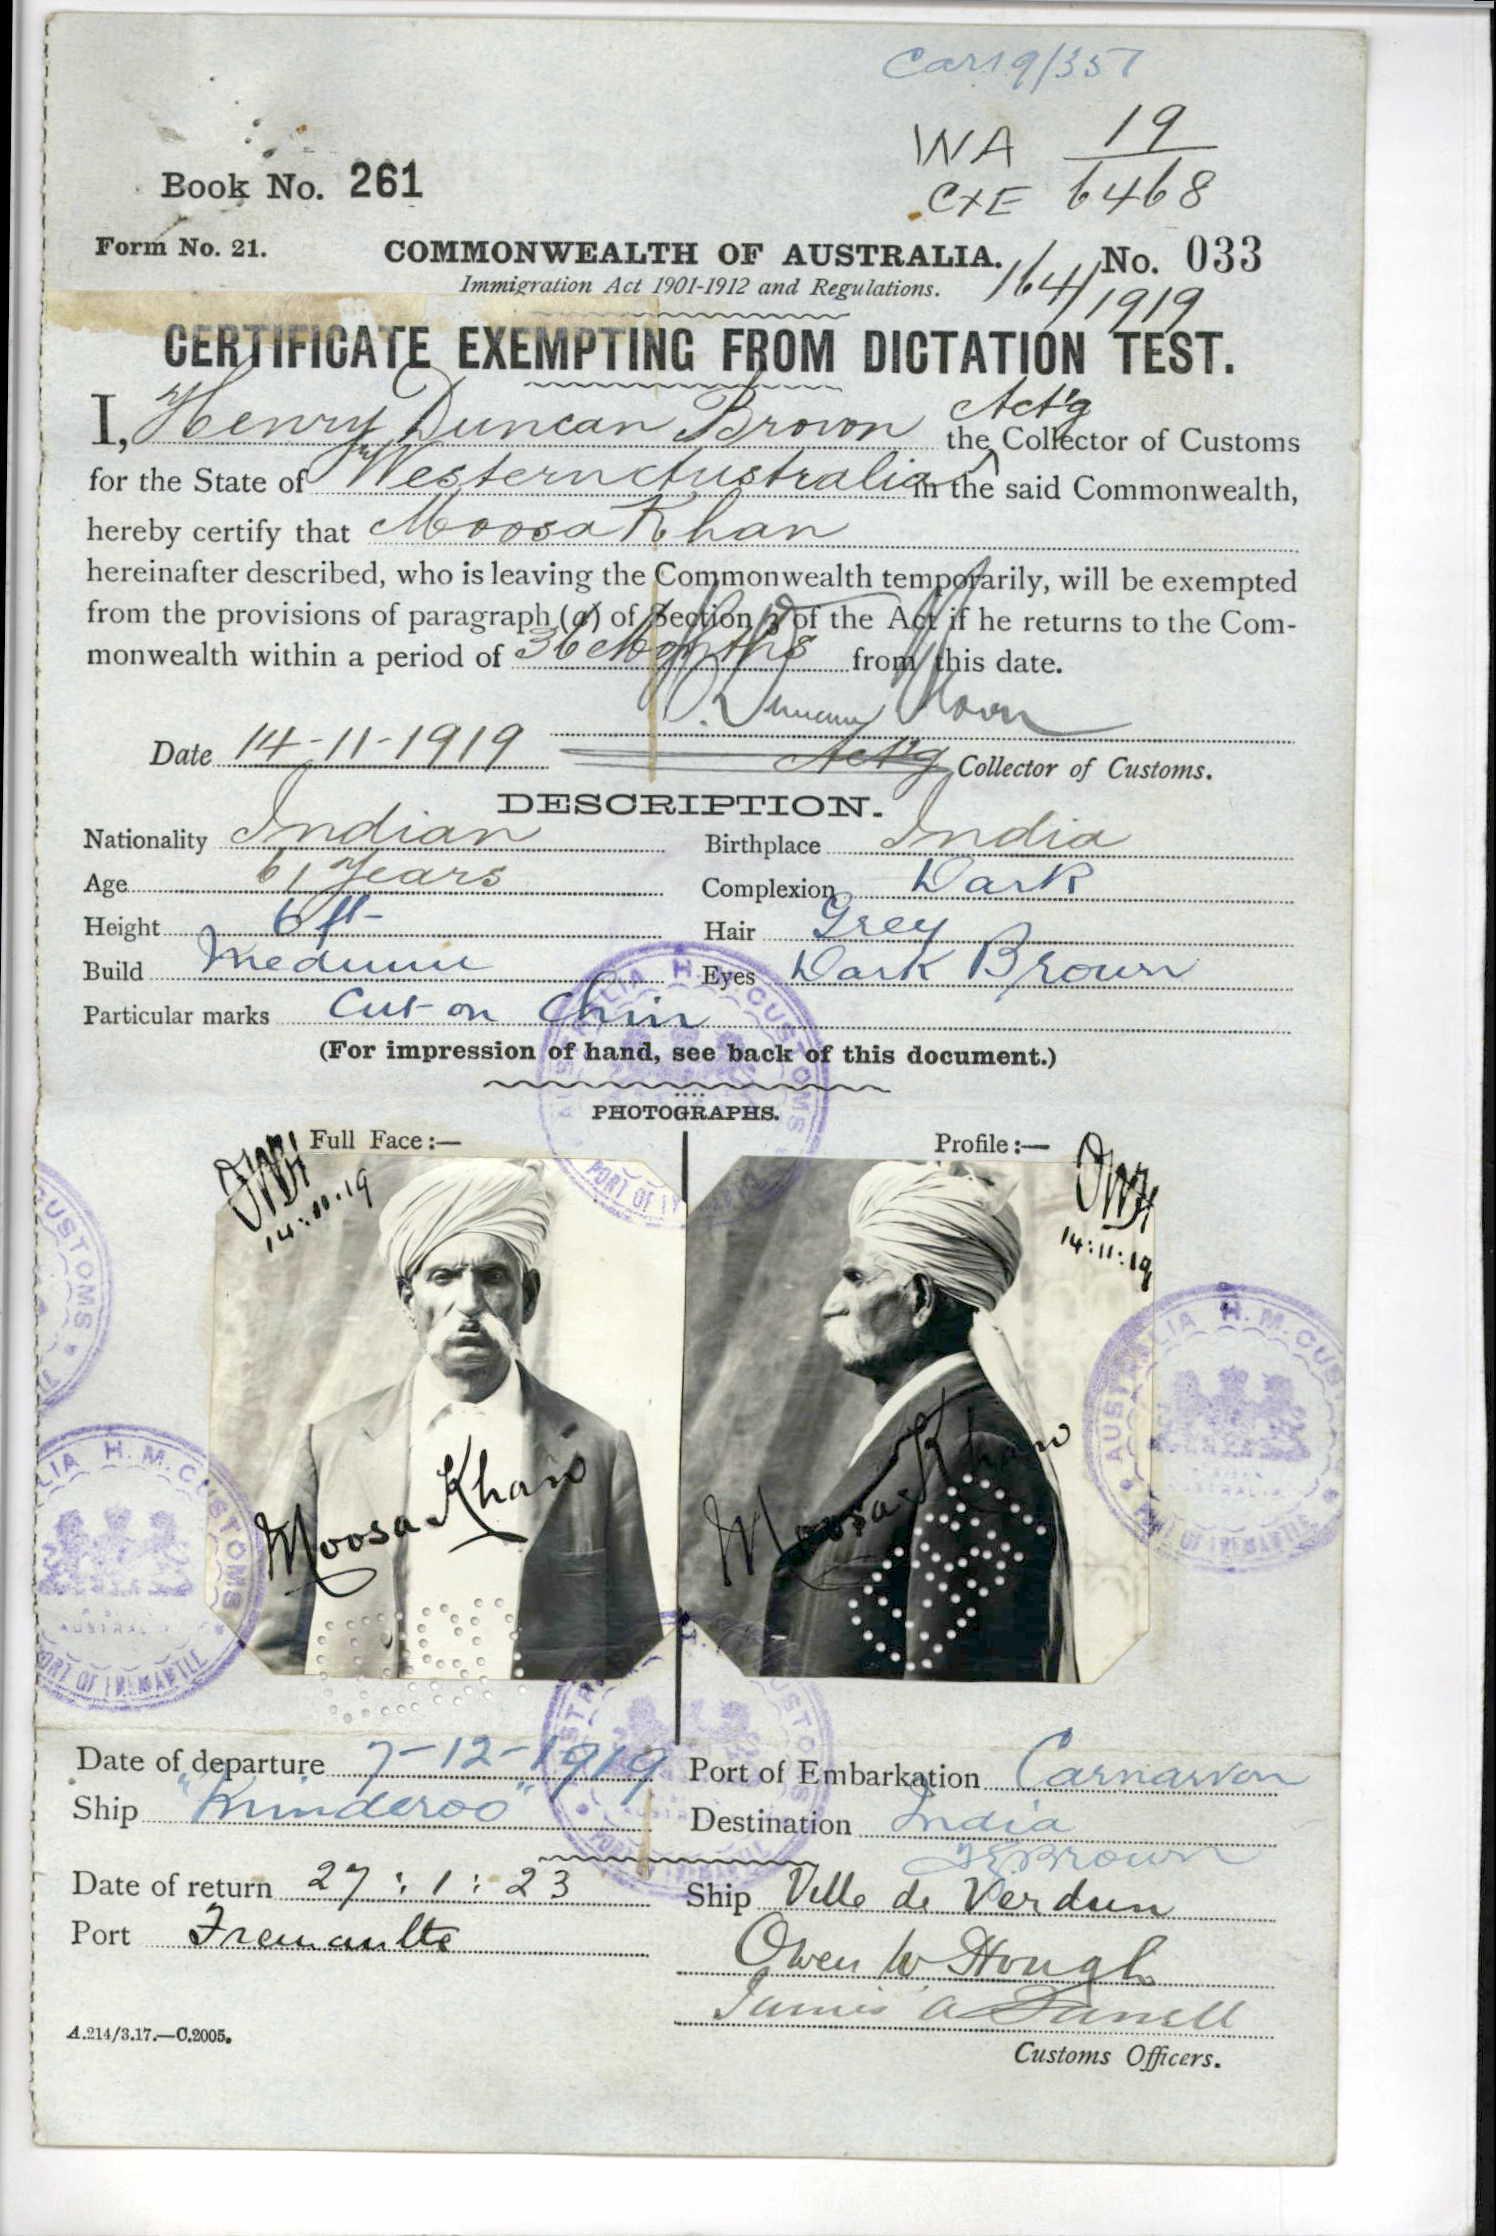 Car 19/357
WA 19
CXE 6468
Book No. 261
Form No. 21. COMMONWEALTH OF AUSTRALIA. No. 033
Immigration Act 1901-1912 and Regulations. 164/1919
CERTIFICATE EXEMPTING FROM DICTATION TEST.
Act'g
I, Henry Duncan Brown the Collector of Customs
for the State of Western Australia in the said Commonwealth,
hereby certify that Moosa Khan
hereinafter described, who is leaving the Commonwealth temporarily, will be exempted
from the provisions of paragraph (a) of Section 3 of the Act if he returns to the Com-
monwealth within a period of 36 Months from this date.
Date 14-11-1919 Act'g Collector of Customs.
DESCRIPTION.
Nationality Indian Birthplace India
Age 61 Years Complexion Dark
Height 6 ft Hair Grey
Build Medium Eyes Dark Brown
Particular marks Cut on Chin
(For impression of hand, see back of this document.)
PHOTOGRAPHS.
Full Face:— Profile:—
14:11:19 14:11:19
Moosa Khan Moosa Khan
AUSTRALIA H.M. CUSTOMS
PORT OF FREMANTLE
Date of departure 7-12-1919 Port of Embarkation Carnarvon
Ship "Minderoo" Destination India
Brown
Date of return 27:1:23 Ship Ville de Verdun
Port Fremantle Owen W Hough
James A Farrell
A.214/3.17.—C.2005.
Customs Officers.